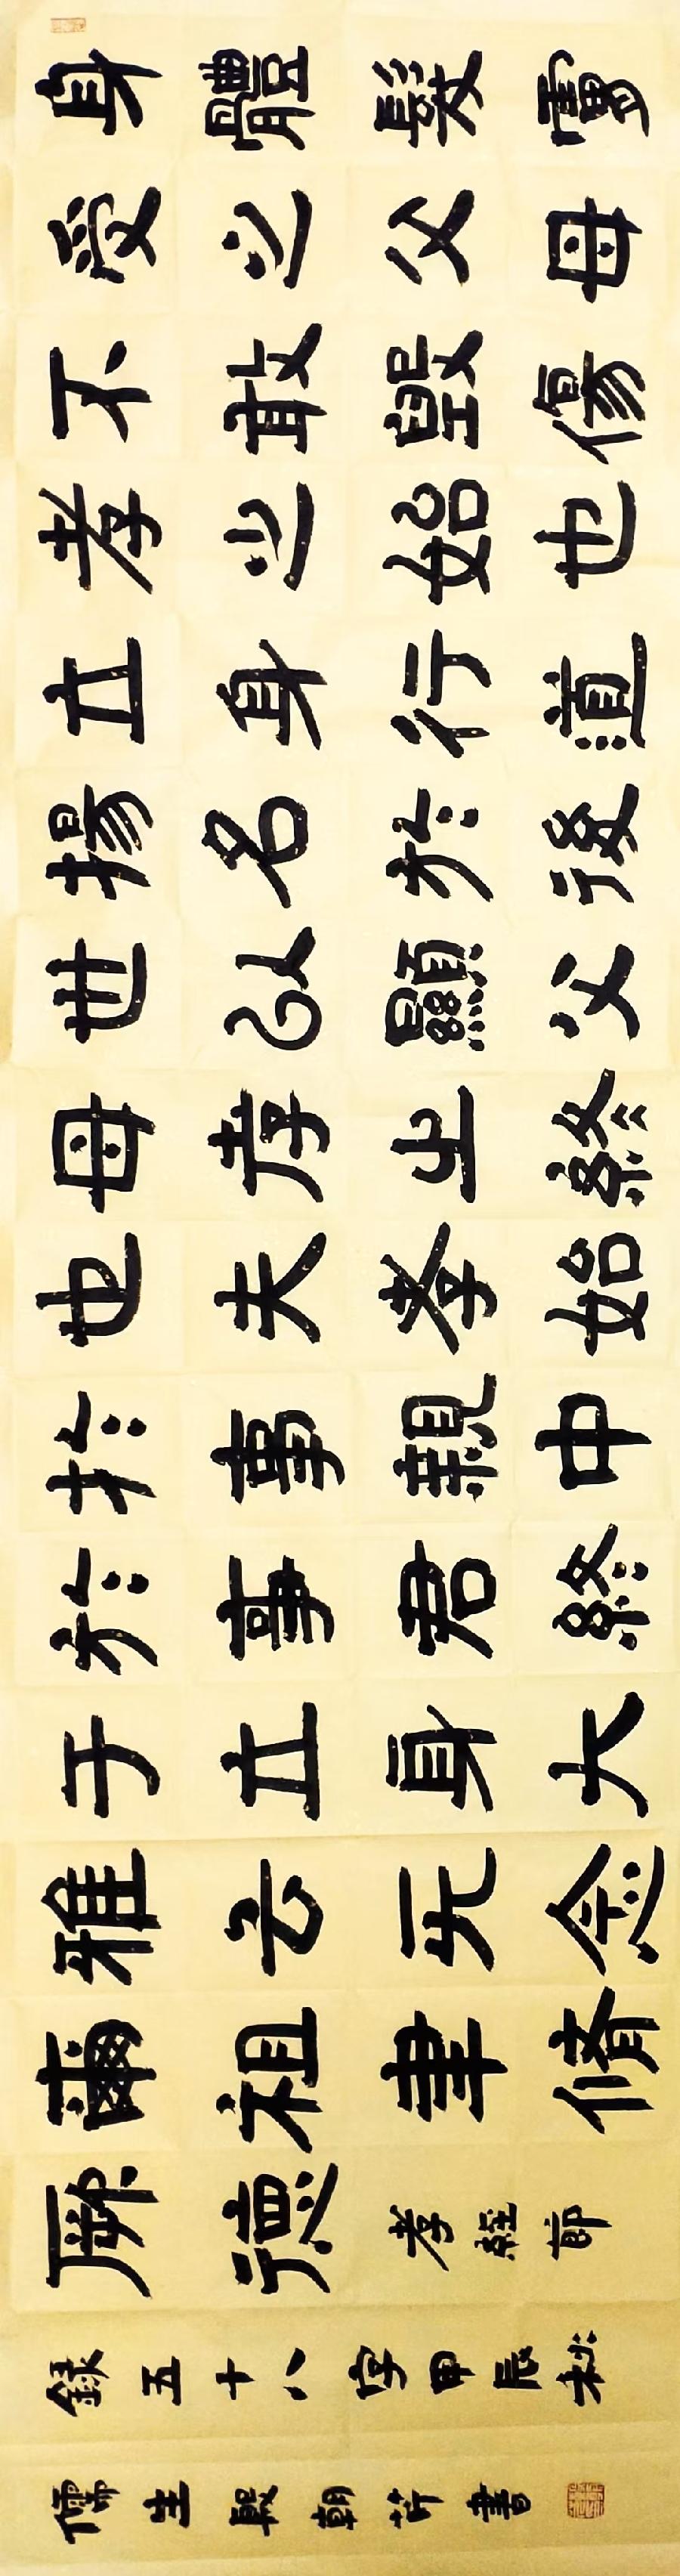 身體髮膚
受之父母
不敢毀傷
孝之始也
立身行道
揚名於後
世以顯父
母孝之終
也夫孝始
於事親中
於事君終
于立身大
雅云无念
爾祖聿脩
厥德孝經節
錄五十八字甲辰秋
儒生殷朝芹書